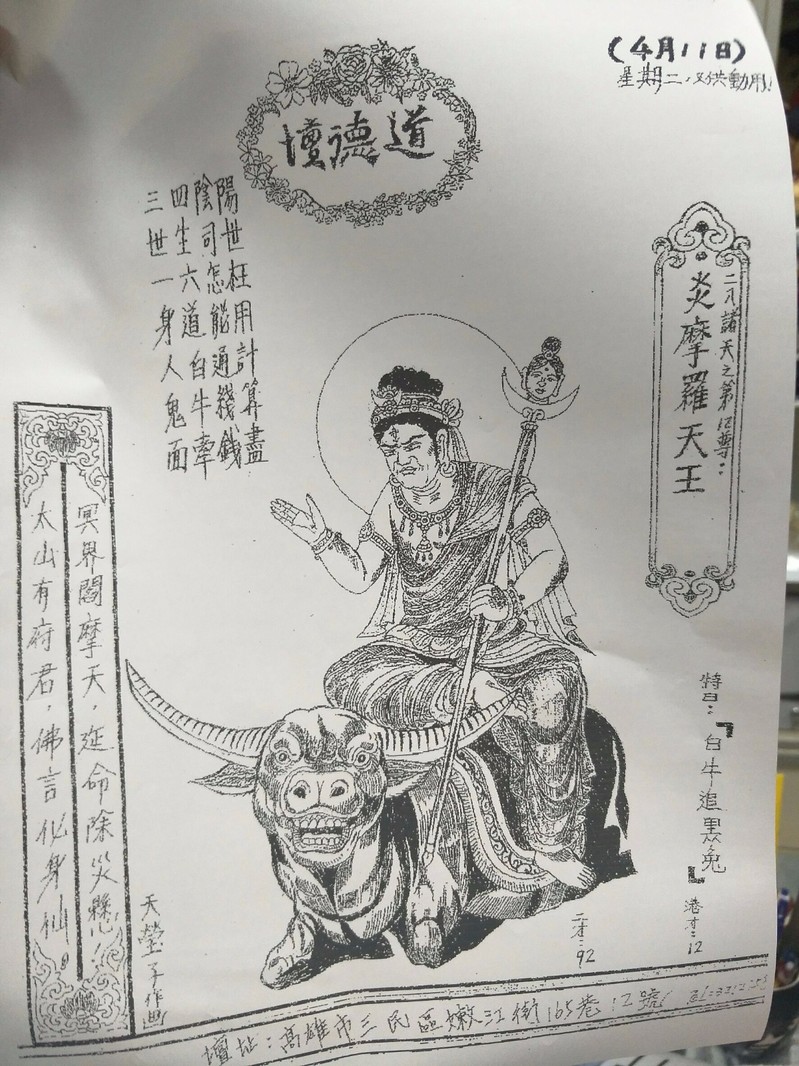 (4月11日)
星期二、又供動用!
道德壇
陽世枉用計算盡
陰司怎能通錢
四生六道白牛牽
三世一身人鬼面
二十諸天之第12尊:
炎摩羅天王
冥界閻摩天,延命除災愆!
太山有府君,佛言化身仙。
特白:
『白牛追黑兔』
港才:12
二才:92
天瑩子作画
壇址:高雄市三民區嫩江街165巷12號